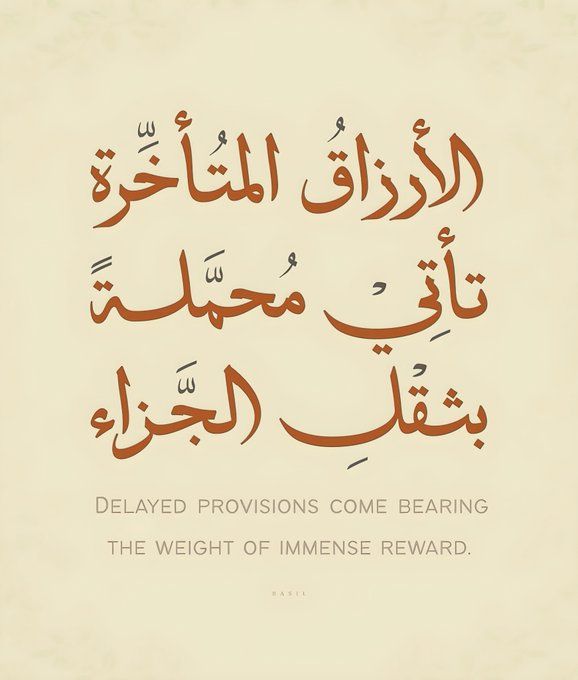 الأرزاقُ المتُأخِّرة
تأتِيْ مُحمَّلةً
بثقْلِ الجَّزاء
DELAYED PROVISIONS COME BEARING
THE WEIGHT OF IMMENSE REWARD.
BASIL